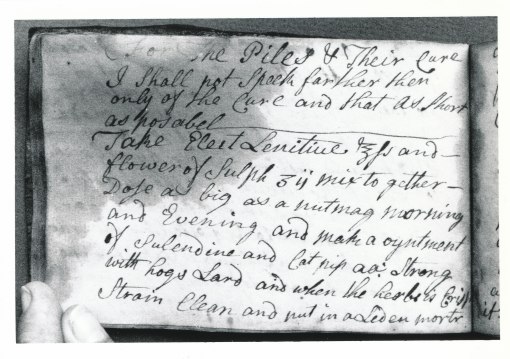 For the Piles & Their Cure
I Shall not Speek farther then
only of the Cure and that as Short
as posabel
Take Elect Lenitive ℥ss and
flower of Sulph ʒij mix to gether
Dose as big as a nutmag morning
and Evening and make a oyntment
of Sulendine and Catnip aa: Strong
with hogs Lard and when the herbs is Crisp
Strain Clean and put in a Leden mortr